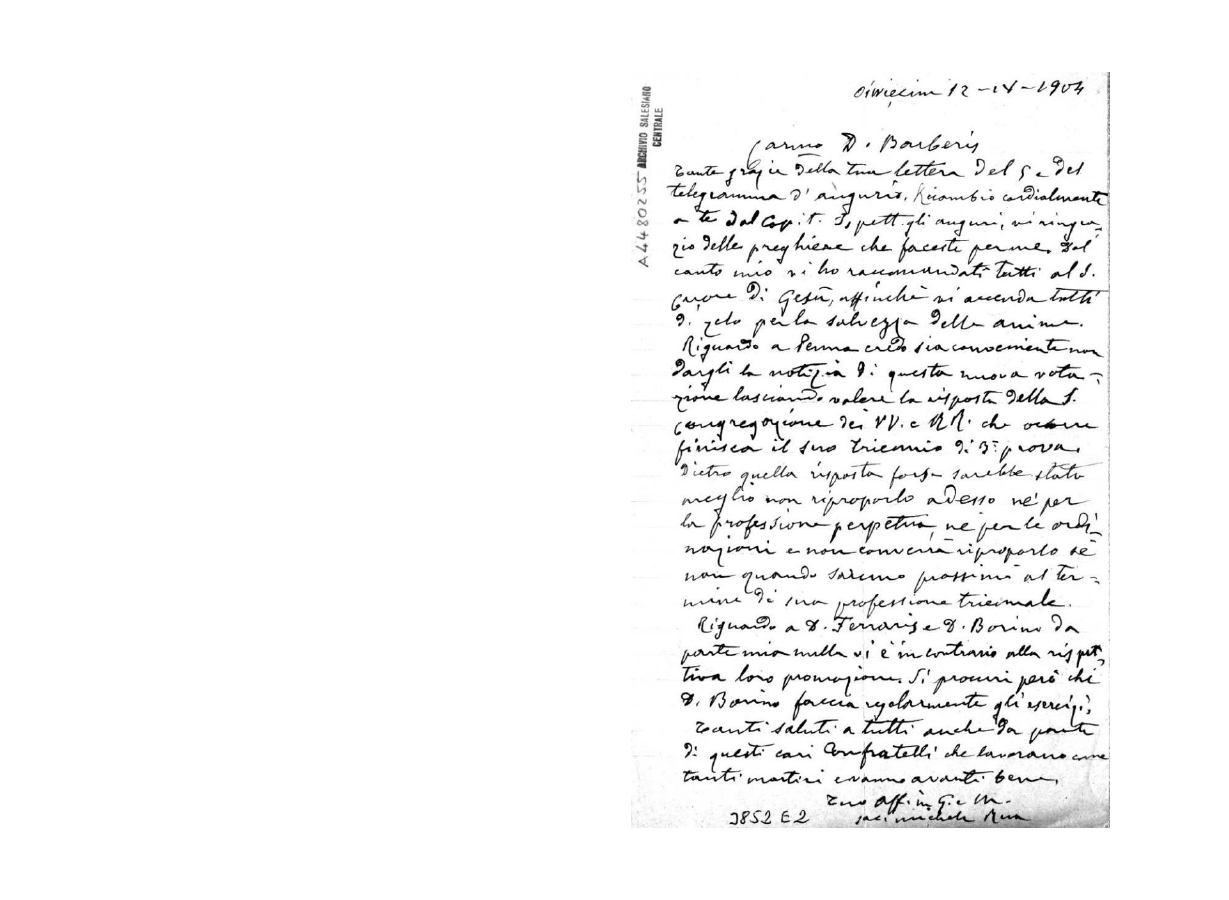 Oświęcim 12-IX-1904
ARCHIVIO SALESIANO
CENTRALE
A4480255
Carmo D. Barberis
Tante grazie della tua lettera del 5 e del
telegramma d'augurio. Ricambio cordialmente
a te dal Cap. it. I, pett. gli auguri, vi ringra-
zio delle preghiere che faceste per me. Dal
canto mio vi ho raccomandati tutti al S.
Cuore di Gesù, affinchè vi accenda tutti
di zelo per la salvezza delle anime.
Riguardo a Penna credo sia conveniente non
dargli la notizia di questa nuova vota-
zione lasciando valere la risposta della S.
Congregazione dei VV. e RR. che occorre
finisca il suo triennio di 3ª prova.
Dietro quella risposta forse sarebbe stato
meglio non riproporlo adesso nè per
la professione perpetua, nè per le ordi-
nazioni e non converrà riproporlo se
non quando saremo prossimi al ter-
mine di sua professione triennale.
Riguardo a D. Ferraris e D. Borino da
parte mia nulla vi è in contrario alla rispet-
tiva loro promozione. Si procuri però che
D. Borino faccia regolarmente gli esercizi.
Tanti saluti a tutti anche da parte
di questi cari Confratelli che lavorano come
tanti martiri e vanno avanti bene.
Tuo aff. in G. e M.
Sac. Michele Rua
3852 E2